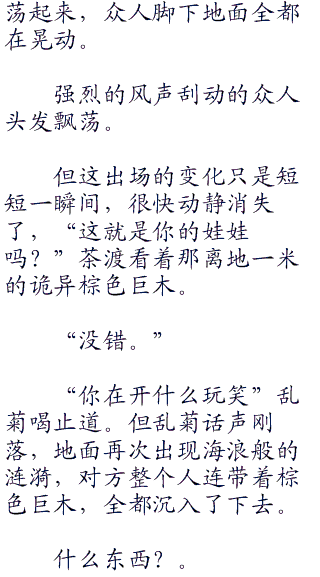 荡起来，众人脚下地面全都
在晃动。
强烈的风声刮动的众人
头发飘荡。
但这出场的变化只是短
短一瞬间，很快动静消失
了，“这就是你的娃娃
吗？”茶渡看着那离地一米
的诡异棕色巨木。
“没错。”
“你在开什么玩笑”乱
菊喝止道。但乱菊话声刚
落，地面再次出现海浪般的
涟漪，对方整个人连带着棕
色巨木，全都沉入了下去。
什么东西？。